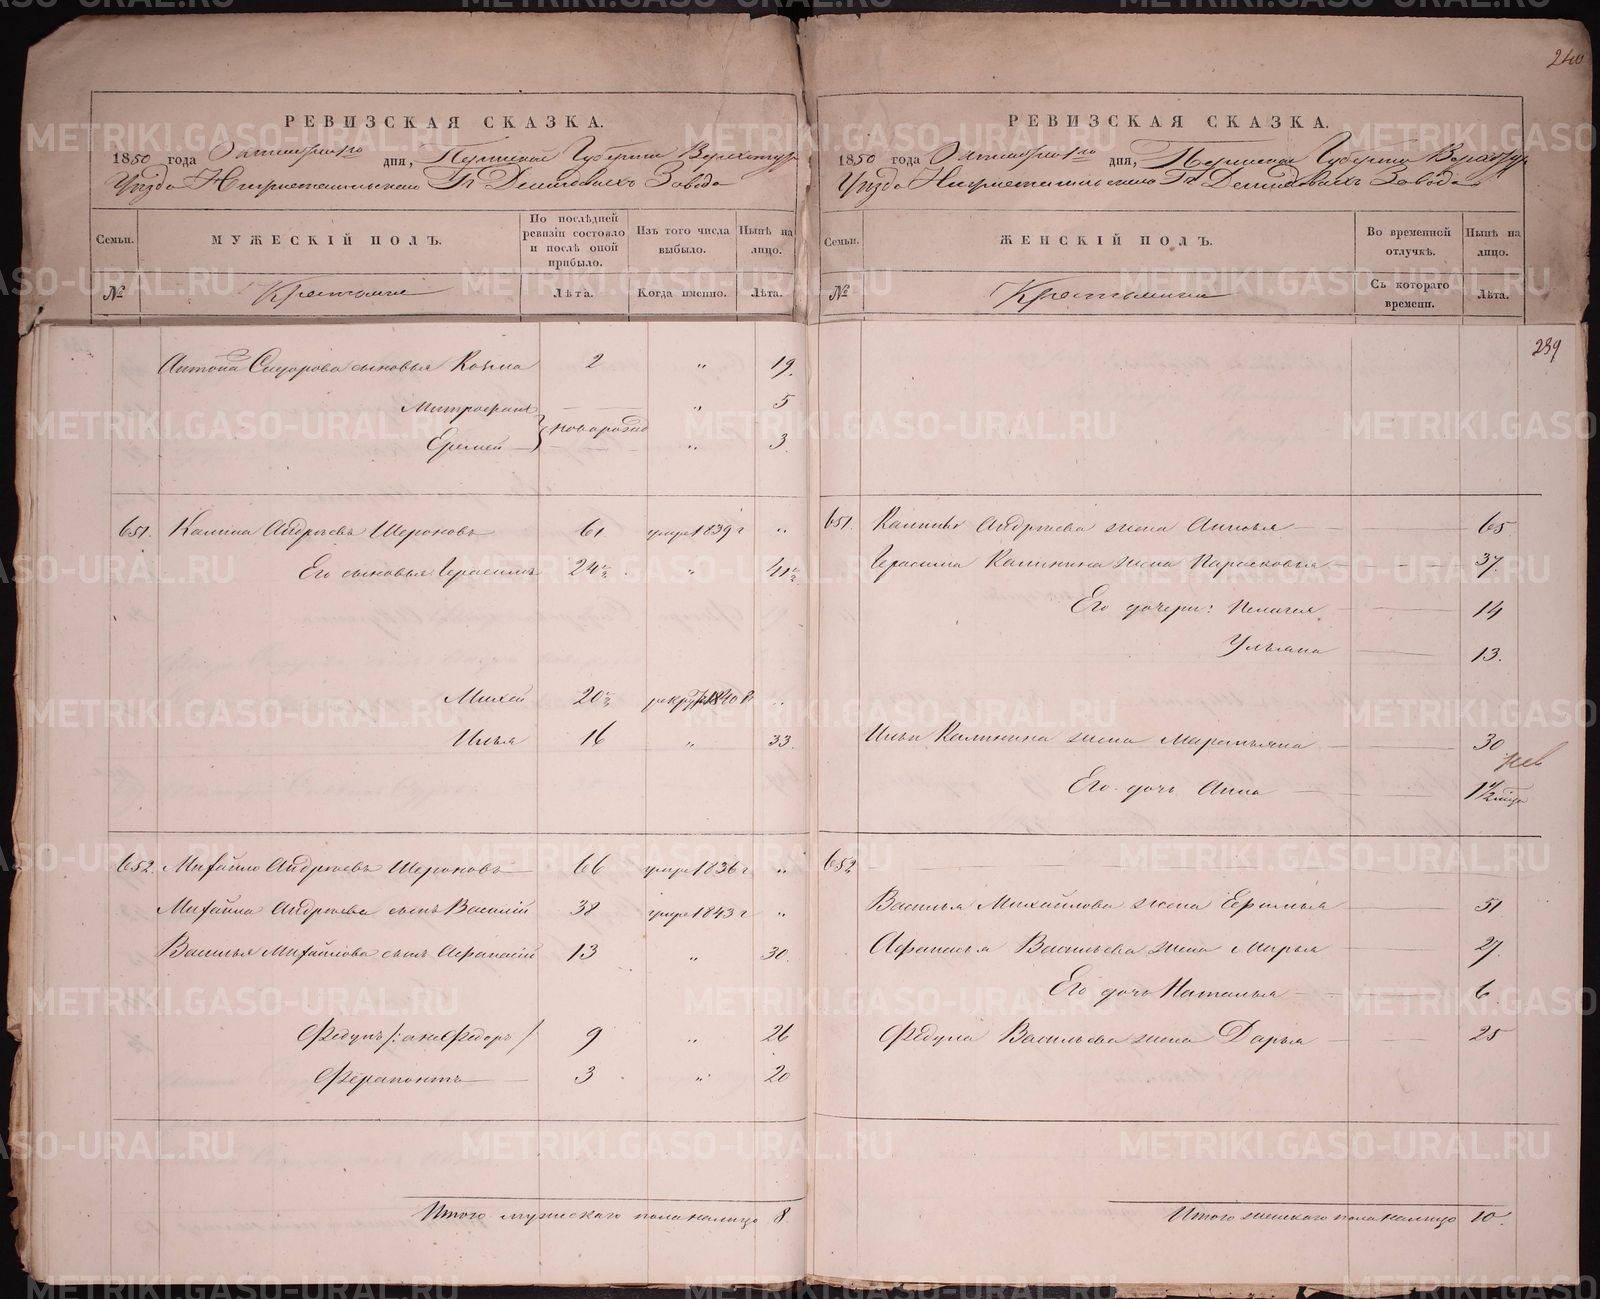 240
РЕВИЗСКАЯ СКАЗКА.
1850 года Октября дня, Пермской Губернии Верхотур
Уезда Нижнетагильского Гг Демидовыхъ Завода
Семьи. МУЖЕСКІЙ ПОЛЪ. По послѣдней ревизіи состояло и послѣ оной прибыло. Изъ того числа выбыло. Нынѣ на лицо.
№ Крестьяне Лѣта. Когда именно. Лѣта.
Антона Сидорова сыновья Козма 2 " 19.
Митрофанъ " 5
новорожд
Еремей " 3.
651. Калина Андреевъ Шероновъ 61 умре 1839 г "
Его сыновья Герасимъ 24½ " 41½
Михей 20½ рекру 1840 г "
Илья 16 " 33.
652. Михайло Андреевъ Шероновъ 66 умре 1836 г "
Михайла Андреева сынъ Василій 38 умре 1843 г "
Василья Михайлова сынъ Афанасій 13 " 30.
Федулъ /: онже Федоръ / 9 " 26
Ферапонтъ 3 " 20
Итого мужескаго пола налицо 8.
РЕВИЗСКАЯ СКАЗКА.
1850 года Октября дня, Пермской Губернии Верхотур
Уезда Нижнетагильского Гг Демидовыхъ Завода
Семьи. ЖЕНСКІЙ ПОЛЪ. Во временной отлучкѣ. Нынѣ на лицо.
№ Крестьянки Съ котораго времени. Лѣта.
239
651. Калины Андреева жена Анисья 65.
Герасима Калинина жена Парасковья 37.
Его дочери: Пелагея 14
Ульяна 13.
Ильи Калинина жена Маремьяна 30
Его дочь Анна
652
Василья Михайлова жена Ефимья 51
Афанасья Васильева жена Марья 27.
Его дочь Наталья 6.
Федула Васильева жена Дарья 25
Итого женского пола налицо 10.
METRIKI.GASO-URAL.RU